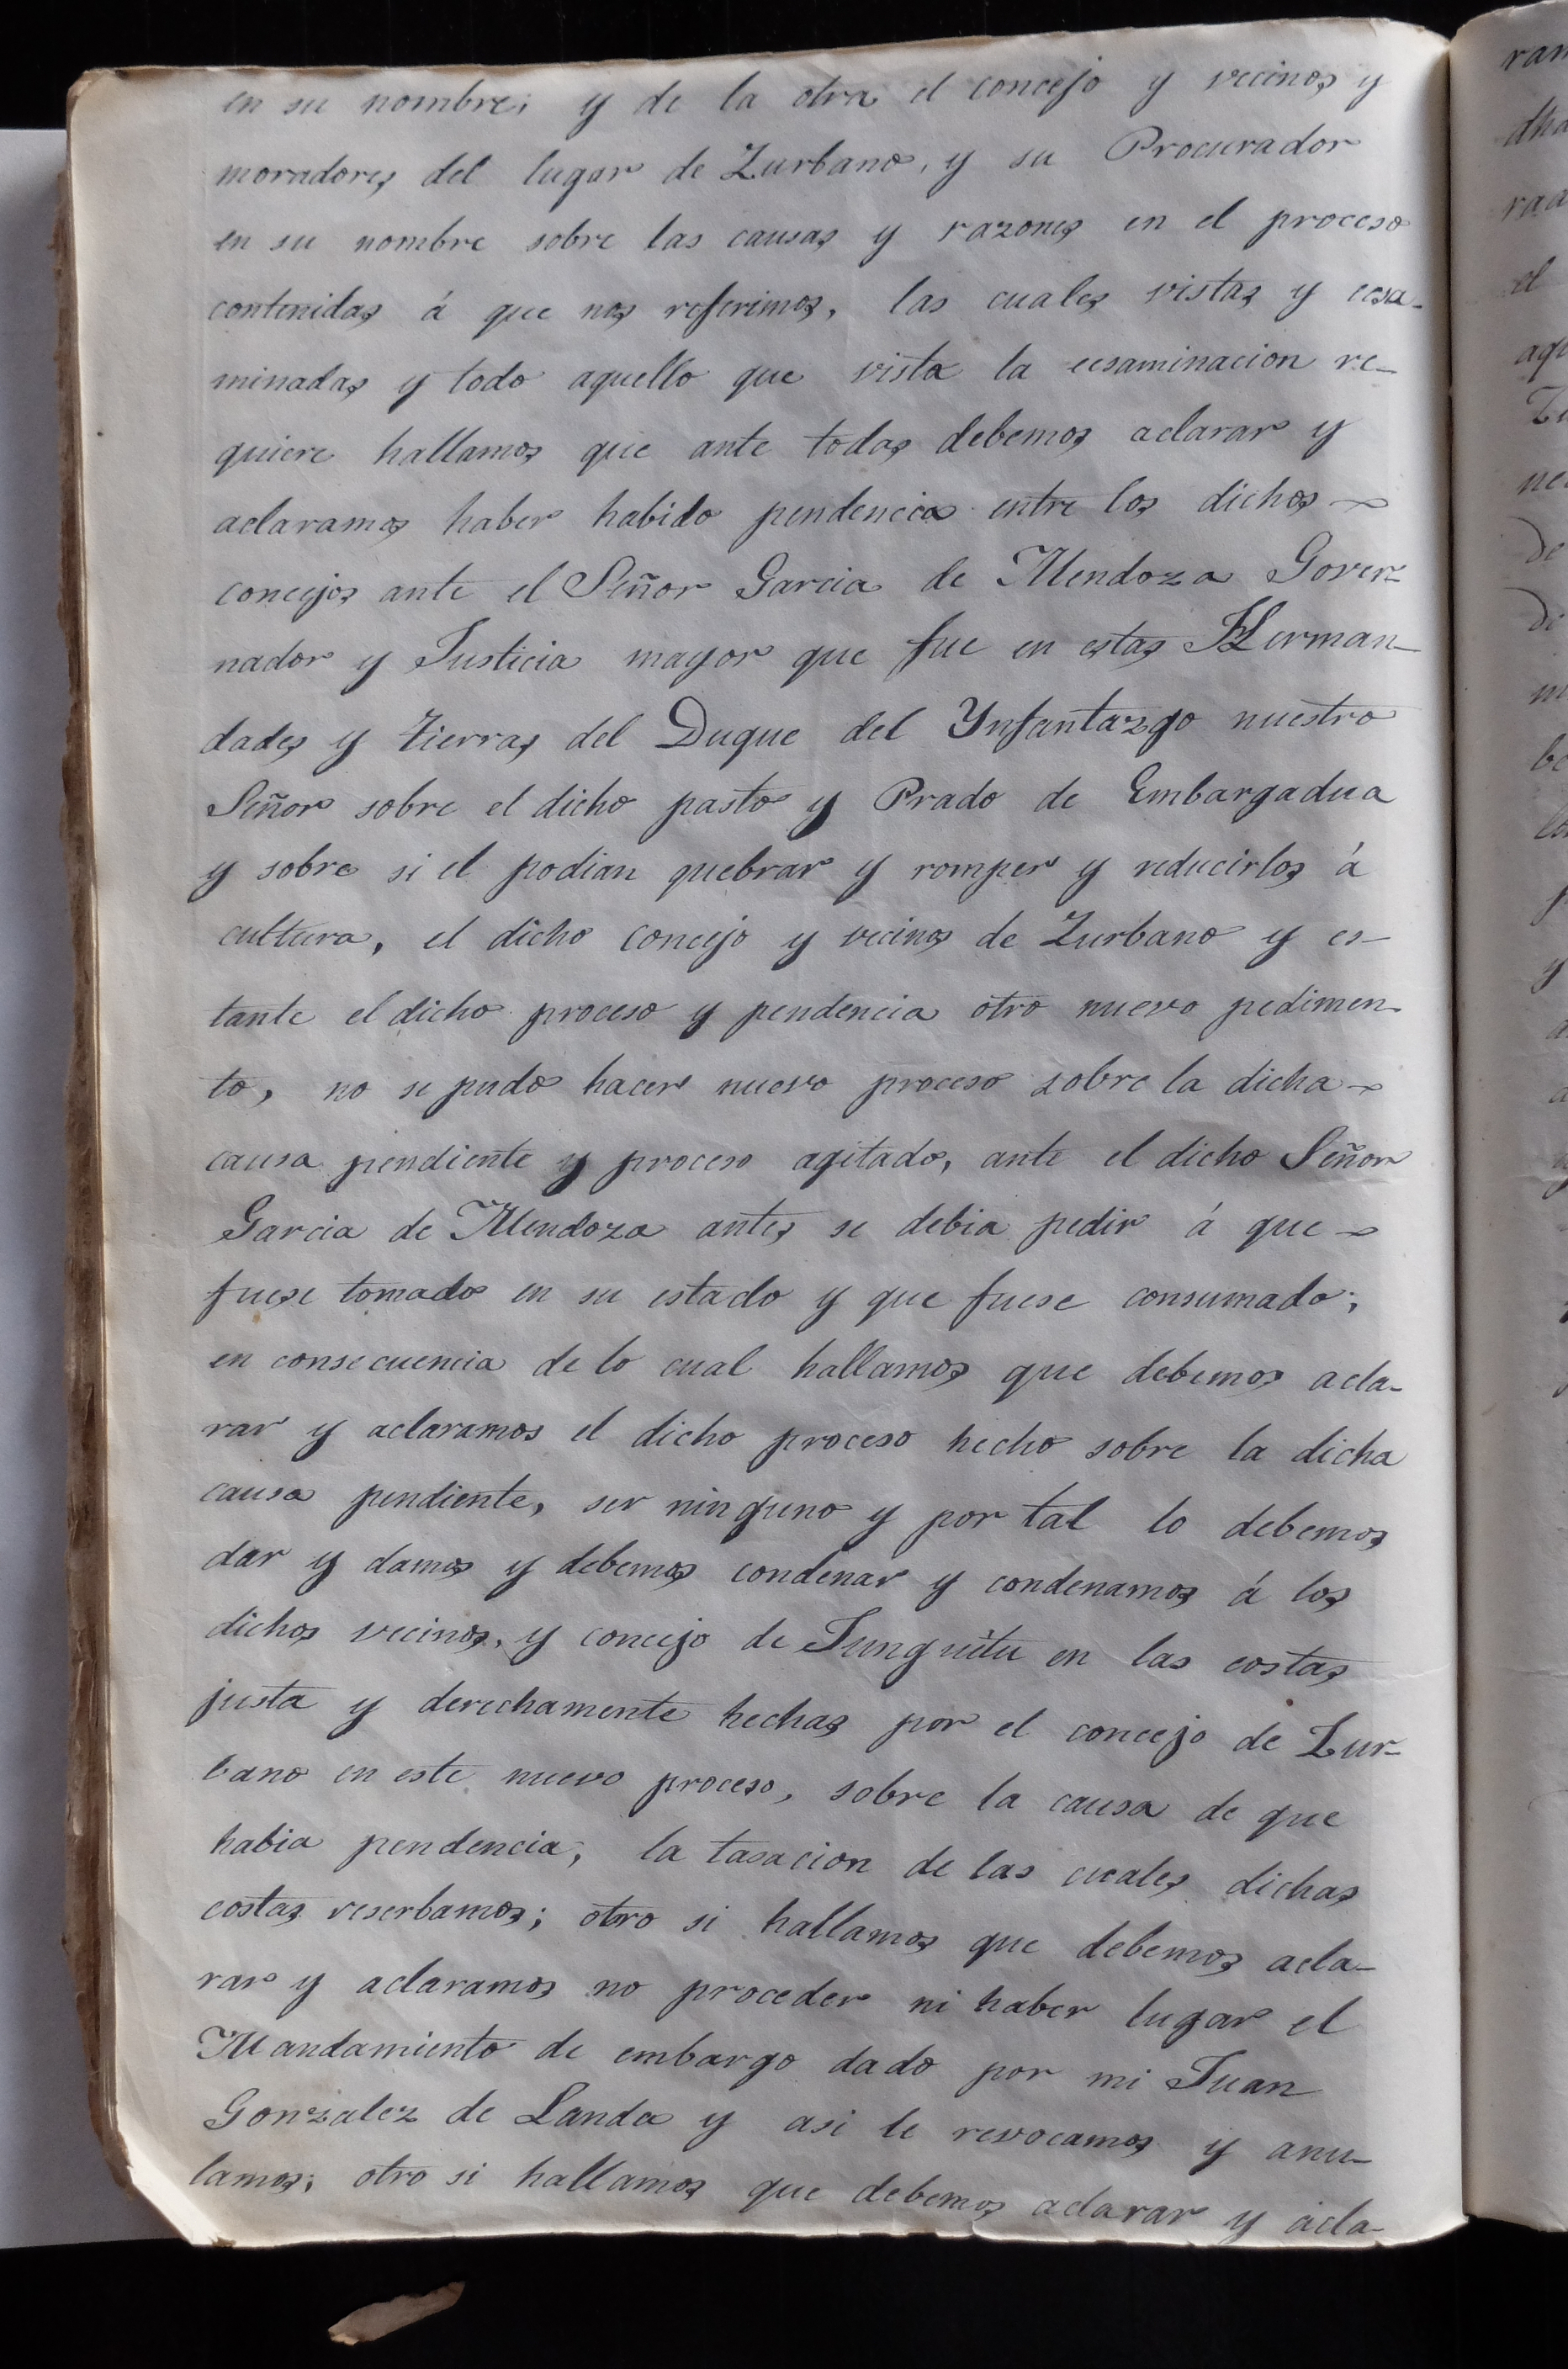 en su nombre; y de la otra el concejo y vecinos y
moradores del lugar de Zurbano, y su Procurador
en su nombre sobre las causas y razones en el proceso
contenidas á que nos referimos, las cuales vistas y ecsa-
minadas y todo aquello que vista la ecsaminacion re-
quiere hallamos que ante todas debemos aclarar y
aclaramos haber habido pendencia entre los dichos
concejos ante el Señor Garcia de Mendoza Gover-
nador y Justicia mayor que fue en estas Herman-
dades y tierras del Duque del Ynfantazgo nuestro
Señor sobre el dicho pasto y Prado de Embargadua
y sobre si el podian quebrar y romper y reducirlos á
cultura, el dicho concejo y vecinos de Zurbano y es-
tante el dicho proceso y pendencia otro nuevo pedimen-
to, no se pudo hacer nuevo proceso sobre la dicha
causa pendiente y proceso agitado, ante el dicho Señor
Garcia de Mendoza antes se debia pedir á que
fuese tomado en su estado y que fuese consumado;
en consecuencia de lo cual hallamos que debemos acla-
rar y aclaramos el dicho proceso hecho sobre la dicha
causa pendiente, ser ninguno y por tal lo debemos
dar y damos y debemos condenar y condenamos á los
dichos vecinos, y concejo de Junguitu en las costas
justa y derechamente hechas por el concejo de Zur-
bano en este nuevo proceso, sobre la causa de que
habia pendencia; la tasacion de las cuales dichas
costas reserbamos; otro si hallamos que debemos acla-
rar y aclaramos no proceder ni haber lugar el
Mandamiento de embargo dado por mi Juan
Gonzalez de Landa y asi le revocamos y anu-
lamos; otro si hallamos que debemos aclarar y acla-